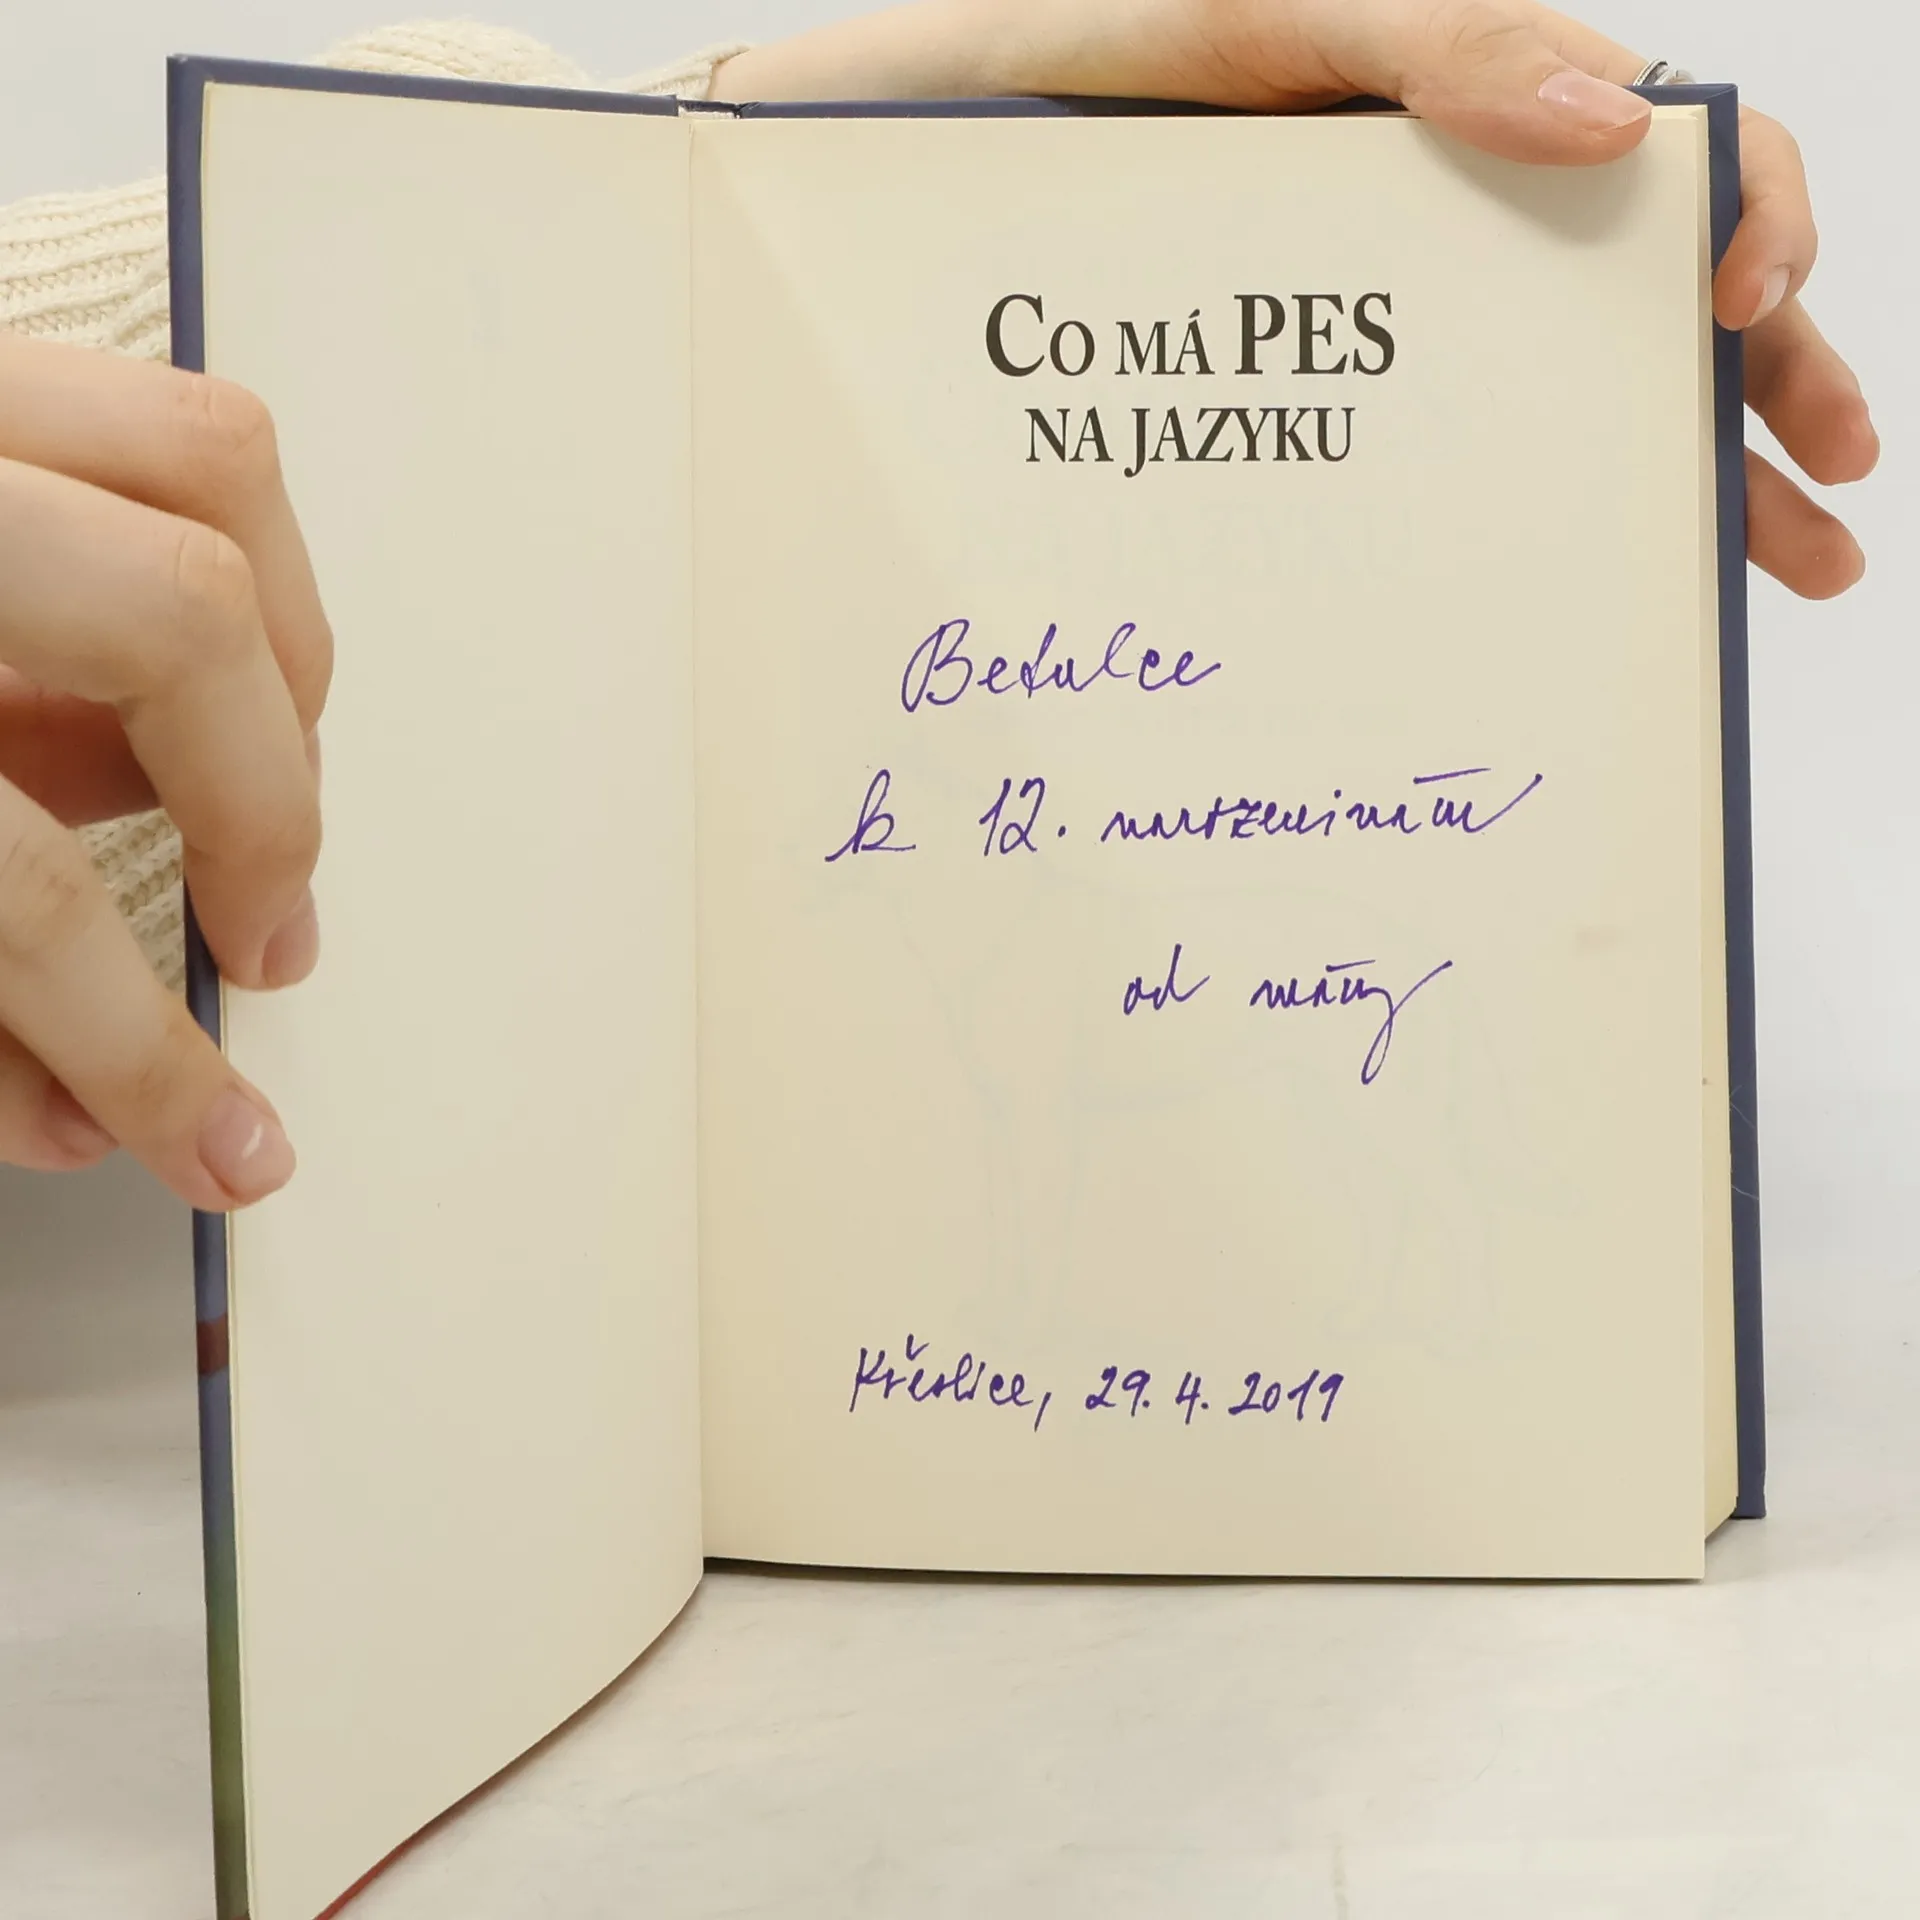 Co má PES
NA JAZYKU
Betulce
k 12. narozeninám
od mámy
Křeslice, 29. 4. 2019